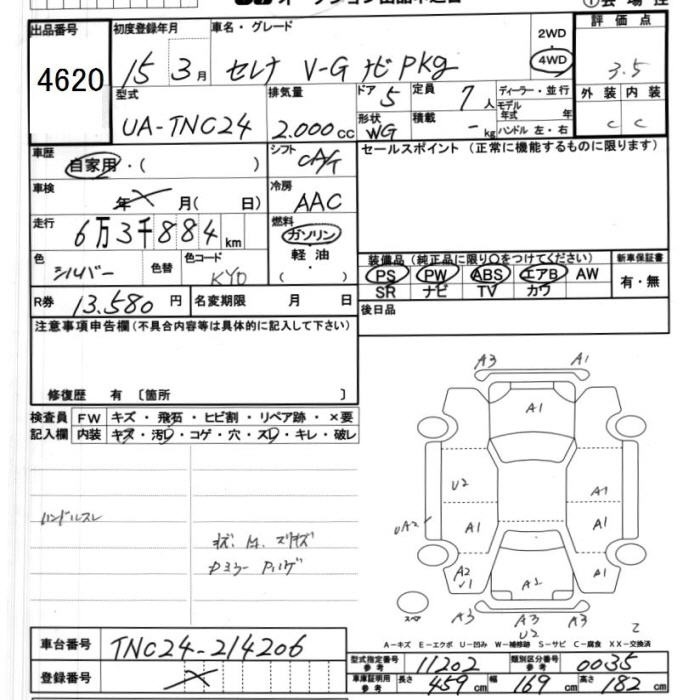 オークション出品申込書
①会場控
出品番号 初度登録年月 車名・グレード 2WD 評価点
4620 15 3月 セレナ V-G ナビPkg 4WD 3.5
型式 排気量 ドア 5 定員 7人 ディーラー・並行 外装 内装
UA-TNC24 2.000cc 形状 WG 積載 -kg モデル年式 年 C C
ハンドル 左・右
車歴 自家用・( ) シフト CA/T セールスポイント (正常に機能するものに限ります)
車検 年 × 月( 日) 冷房 AAC
走行 6万3千884km 燃料 ガソリン
軽油
( ・ )
色 シルバー 色替 色コード KY0
装備品 (純正品に限り○をつけてください) 新車保証書
PS PW ABS エアB AW 有・無
SR ナビ TV カワ
R券 13.580円 名変期限 月 日 後日品
注意事項申告欄(不具合内容等は具体的に記入して下さい)
修復歴 有 〔箇所 〕
検査員 FW キズ・飛石・ヒビ割・リペア跡・×要
記入欄 内装 キズ・汚レ・コゲ・穴・スレ・キレ・破レ
ハンドルスレ
A3 A1
A1
U2 A1
UA2 A1 A1
A2 U1 A1
A2
スペア A3 A3 A3
U2 2
A−キズ E−エクボ U−凹み W−補修跡 S−サビ C−腐食 XX−交換済
車台番号 TNC24-214206
登録番号 ×
型式指定番号 参考 11202 類別区分番号 参考 0035
車庫証明用 参考 長さ 459cm 幅 169cm 高さ 182cm